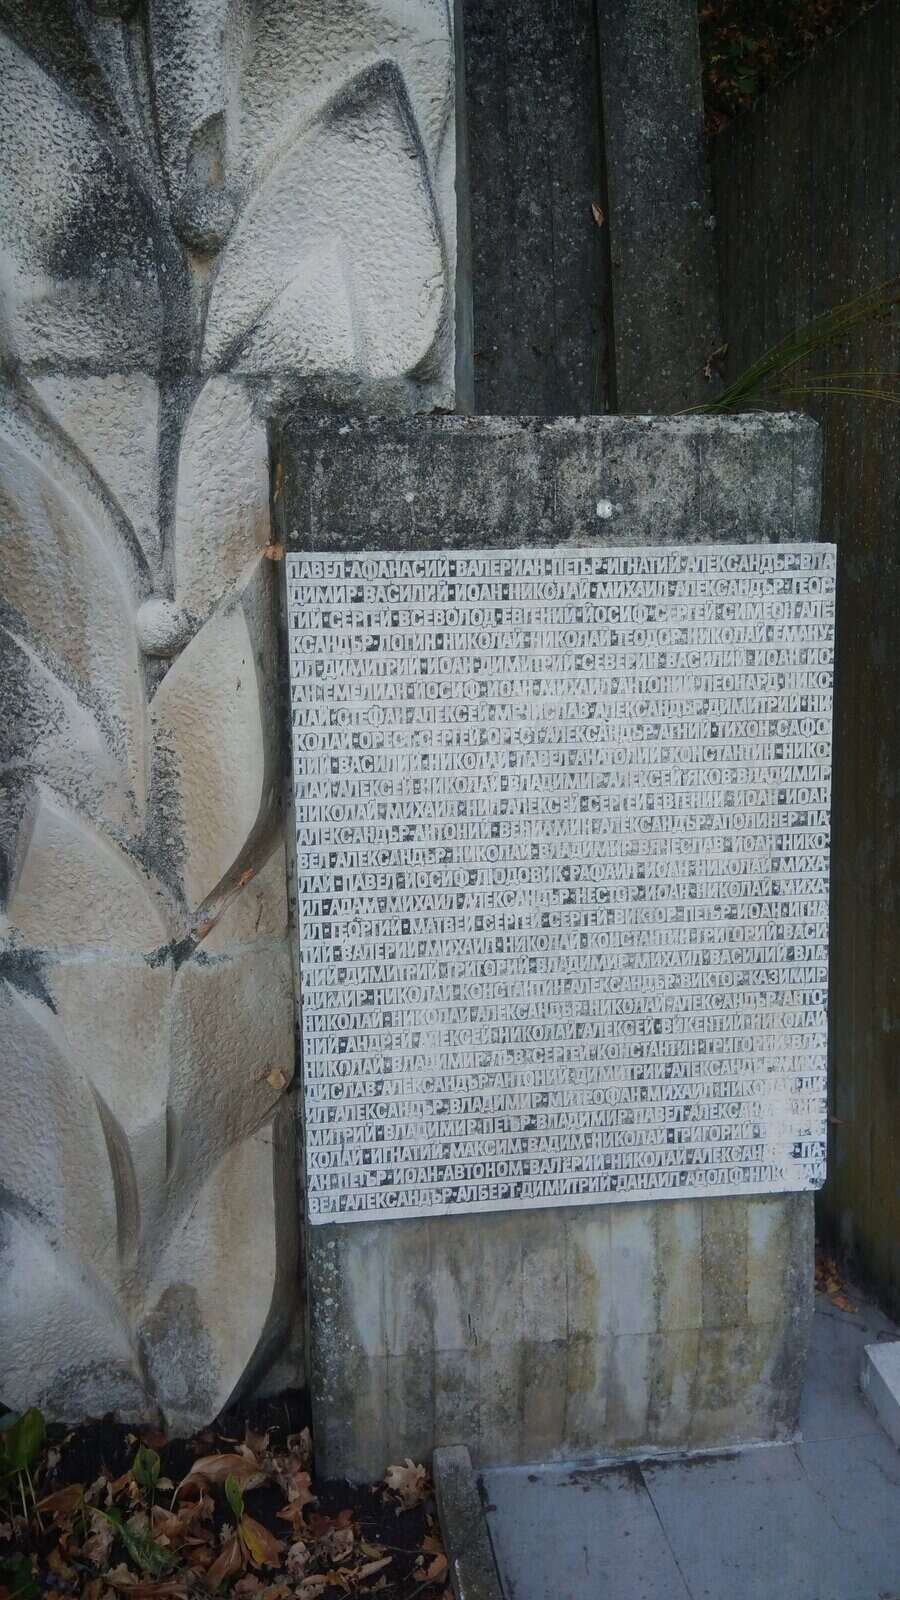 ПАВЕЛ·АФАНАСИЙ·ВАЛЕРИАН·ПЕТЪР·ИГНАТИЙ·АЛЕКСАНДЪР·ВЛА
ДИМИР·ВАСИЛИЙ·ИОАН·НИКОЛАЙ·МИХАИЛ·АЛЕКСАНДЪР·ГЕОР
ГИЙ·СЕРГЕЙ·ВСЕВОЛОД·ЕВГЕНИЙ·ЙОСИФ·СЕРГЕЙ·СИМЕОН·АЛЕ
КСАНДЪР·ЛОГИН·НИКОЛАЙ·НИКОЛАЙ·ТЕОДОР·НИКОЛАЙ·ЕМАНУ
ИЛ·ДИМИТРИЙ·ИОАН·ДИМИТРИЙ·СЕВЕРИН·ВАСИЛИЙ·ИОАН·ИО
АН·ЕМЕЛИАН·ЙОСИФ·ИОАН·МИХАИЛ·АНТОНИЙ·ЛЕОНАРД·НИКО
ЛАЙ·СТЕФАН·АЛЕКСЕЙ·МЕЧИСЛАВ·АЛЕКСАНДЪР·ДИМИТРИЙ·НИ
КОЛАЙ·ОРЕСТ·СЕРГЕЙ·ОРЕСТ·АЛЕКСАНДЪР·АГНИЙ·ТИХОН·САФО
НИЙ·ВАСИЛИЙ·НИКОЛАЙ·ПАВЕЛ·АНАТОЛИЙ·КОНСТАНТИН·НИКО
ЛАЙ·АЛЕКСЕЙ·НИКОЛАЙ·ВЛАДИМИР·АЛЕКСЕЙ·ЯКОВ·ВЛАДИМИР
НИКОЛАЙ·МИХАИЛ·НИЛ·АЛЕКСЕЙ·СЕРГЕЙ·ЕВГЕНИЙ·ИОАН·ИОАН
АЛЕКСАНДЪР·АНТОНИЙ·ВЕНИАМИН·АЛЕКСАНДЪР·АПОЛИНЕР·ПА
ВЕЛ·АЛЕКСАНДЪР·НИКОЛАЙ·ВЛАДИМИР·ВЯЧЕСЛАВ·ИОАН·НИКО
ЛАЙ·ПАВЕЛ·ЙОСИФ·ЛЮДОВИК·РАФАИЛ·ИОАН·НИКОЛАЙ·МИХА
ИЛ·АДАМ·МИХАИЛ·АЛЕКСАНДЪР·НЕСТОР·ИОАН·НИКОЛАЙ·МИХА
ИЛ·ГЕОРГИЙ·МАТВЕЙ·СЕРГЕЙ·СЕРГЕЙ·ВИКТОР·ПЕТЪР·ИОАН·ИГНА
ТИЙ·ВАЛЕРИЙ·МИХАИЛ·НИКОЛАЙ·КОНСТАНТИН·ГРИГОРИЙ·ВАСИ
ЛИЙ·ДИМИТРИЙ·ГРИГОРИЙ·ВЛАДИМИР·МИХАИЛ·ВАСИЛИЙ·ВЛА
ДИМИР·НИКОЛАЙ·КОНСТАНТИН·АЛЕКСАНДЪР·ВИКТОР·КАЗИМИР
НИКОЛАЙ·НИКОЛАЙ·АЛЕКСАНДЪР·НИКОЛАЙ·АЛЕКСАНДЪР·АНТО
НИЙ·АНДРЕЙ·АЛЕКСЕЙ·НИКОЛАЙ·АЛЕКСЕЙ·ВИКЕНТИЙ·НИКОЛАЙ
НИКОЛАЙ·ВЛАДИМИР·ЛЪВ·СЕРГЕЙ·КОНСТАНТИН·ГРИГОРИЙ·ВЛА
ДИСЛАВ·АЛЕКСАНДЪР·АНТОНИЙ·ДИМИТРИЙ·АЛЕКСАНДЪР·МИХА
ИЛ·АЛЕКСАНДЪР·ВЛАДИМИР·МИТРОФАН·МИХАИЛ·НИКОЛАЙ·ДИ
МИТРИЙ·ВЛАДИМИР·ПЕТЪР·ВЛАДИМИР·ПАВЕЛ·АЛЕКСАН
КОЛАЙ·ИГНАТИЙ·МАКСИМ·ВАДИМ·НИКОЛАЙ·ГРИГОРИЙ
АН·ПЕТЪР·ИОАН·АВТОНОМ·ВАЛЕРИЙ·НИКОЛАЙ·АЛЕКСАНДЪР·ПА
ВЕЛ·АЛЕКСАНДЪР·АЛБЕРТ·ДИМИТРИЙ·ДАНАИЛ·АДОЛФ·НИКОЛАЙ